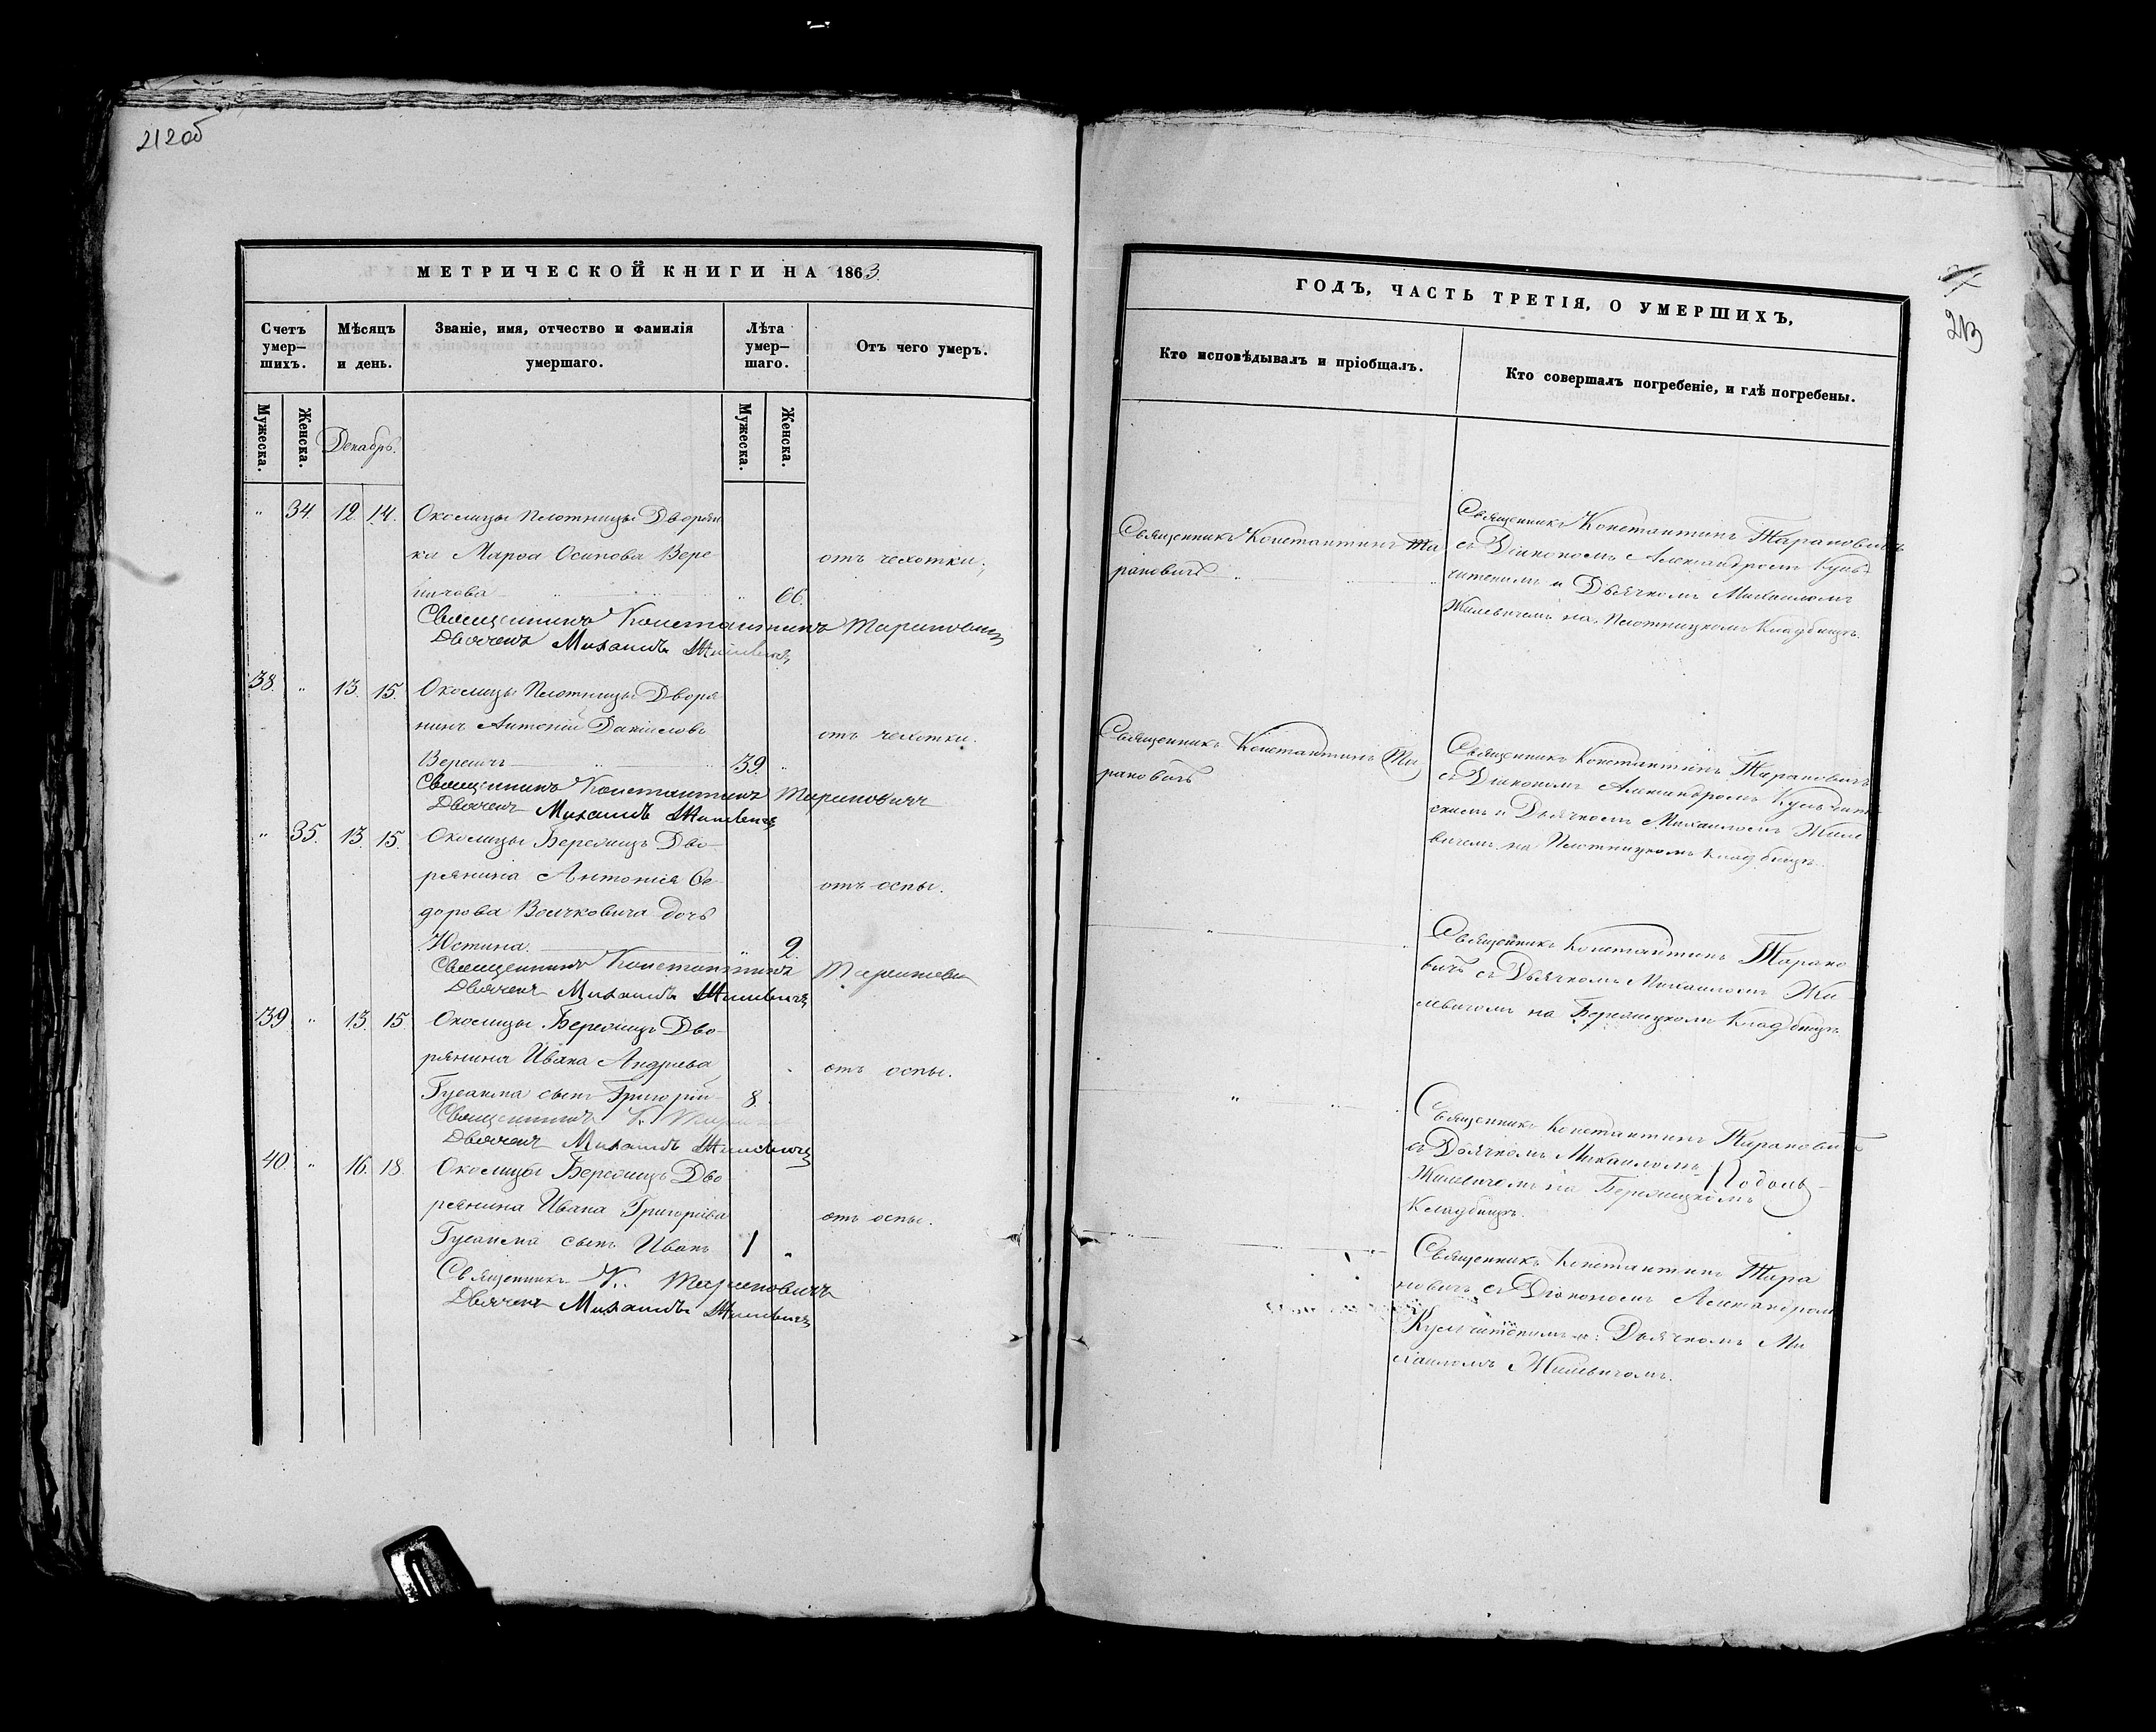 212об
МЕТРИЧЕСКОЙ КНИГИ НА 1863.
Счетъ умер-шихъ.
Мѣсяцъ и день.
Званіе, имя, отчество и фамилія умершаго.
Лѣта умер-шаго.
Отъ чего умеръ.
Мужеска.
Женска.
Декабрь.
Мужеска.
Женска.
" 34. 12. 14. Околицы Плотницы Дворян
ка Марѳа Осипова Вере
ничова " 66. отъ чехотки.
Священникъ Константинъ Тарановичъ
Дьячекъ Михаилъ Жилевичъ
38. " 13. 15. Околицы Плотницы Дворя
нинъ Антоній Даніиловъ
Вереничъ 39. " отъ чехотки.
Священникъ Константинъ Тарановичъ
Дьячекъ Михаилъ Жилевичъ
" 35. 13. 15. Околицы Бережицъ Дво-
рянина Антонія Ѳе-
дорова Воличковича дочь
Юстина. " 2. отъ оспы.
Священникъ Константинъ Тарановичъ
Дьячекъ Михаилъ Жилевичъ
39 " 13. 15 Околицы Бережицъ Дво-
рянина Ивана Андреева
Гусаима сынъ Григорій 8. отъ оспы.
Священникъ К. Тарановичъ
Дьячекъ Михаилъ Жилевичъ
40. " 16. 18. Околицы Бережицъ Дво
рянина Ивана Григорьева
Гусаима сынъ Иванъ 1 " отъ оспы.
Священникъ К. Тарановичъ
Дьячекъ Михаилъ Жилевичъ
213
ГОДЪ, ЧАСТЬ ТРЕТІЯ, О УМЕРШИХЪ,
Кто исповѣдывалъ и пріобщалъ.
Кто совершалъ погребеніе, и гдѣ погребены.
Священникъ Константинъ Та
рановичъ "
Священникъ Константинъ Тарановичъ
съ Діакономъ Александромъ
и Дьячкомъ Михаиломъ
Жилевичемъ на Плотницкомъ Кладбищѣ.
Священникъ Константинъ Та
рановичъ
Священникъ Константинъ Тарановичъ
съ Діакономъ Александромъ
и Дьячкомъ Михаиломъ Жиле
вичемъ на Плотницкомъ Кладбищѣ.
"
Священникъ Константинъ Тарано
вичъ съ Дьячкомъ Михаиломъ Жи-
левичомъ на Бережицкомъ Кладбищѣ.
"
Священникъ Константинъ Тарановичъ
съ Дьячкомъ Михаиломъ
Жилевичемъ на Бережицкомъ
Кладбищѣ.
"
Священникъ Константинъ Тара
новичъ съ Діакономъ Александромъ
и Дьячкомъ Ми
хаиломъ Жилевичомъ.